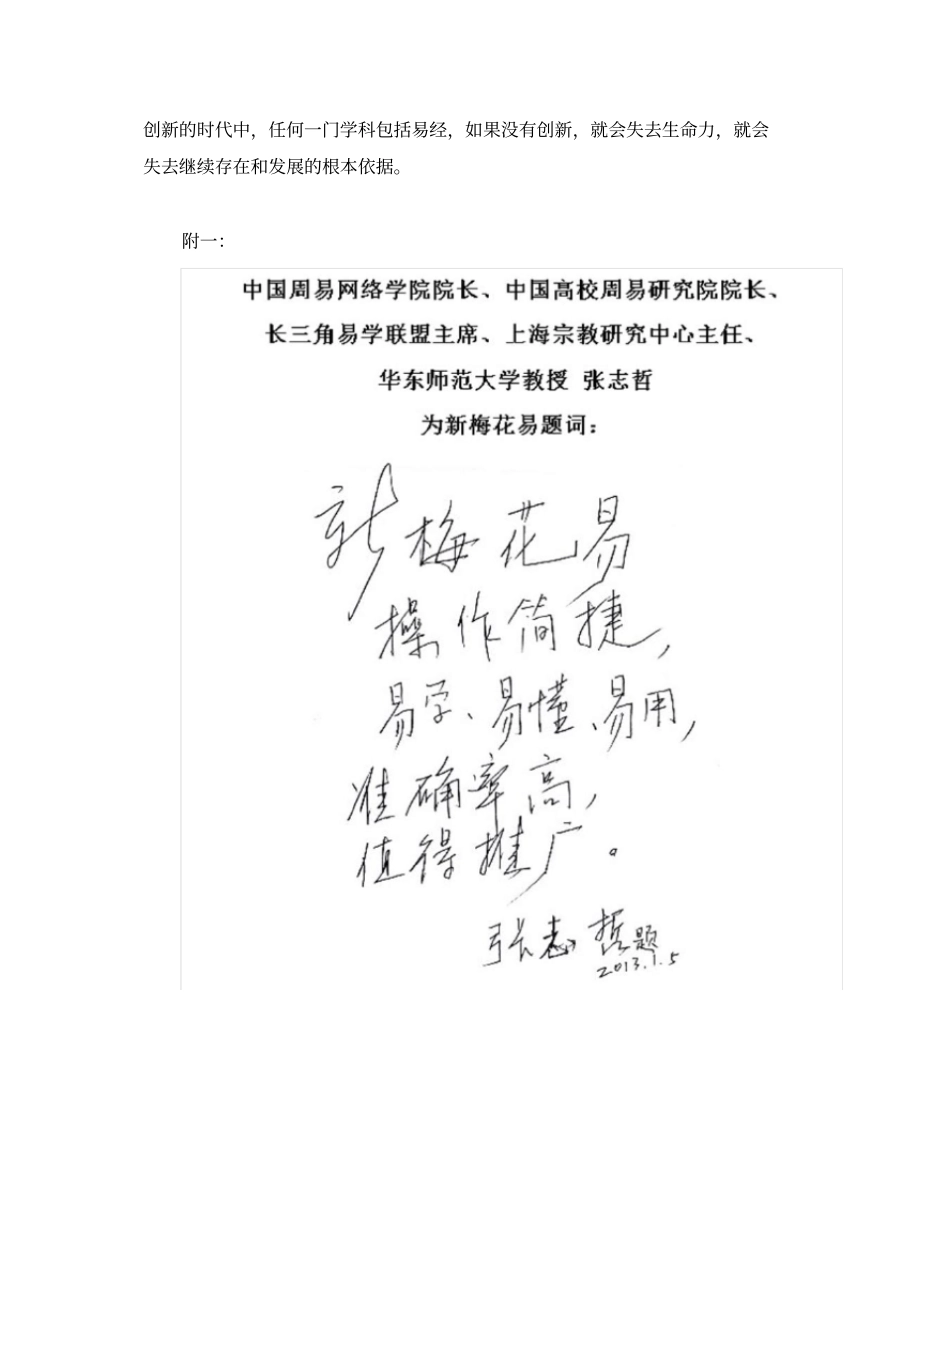 创新的时代中，任何一门学科包括易经，如果没有创新，就会失去生命力，就会
失去继续存在和发展的根本依据。
附一：
中国周易网络学院院长、中国高校周易研究院院长、
长三角易学联盟主席、上海宗教研究中心主任、
华东师范大学教授 张志哲
为新梅花易题词：
新梅花易
操作简捷，
易学、易懂、易用，
准确率高，
值得推广。
张志哲题
2013.1.5